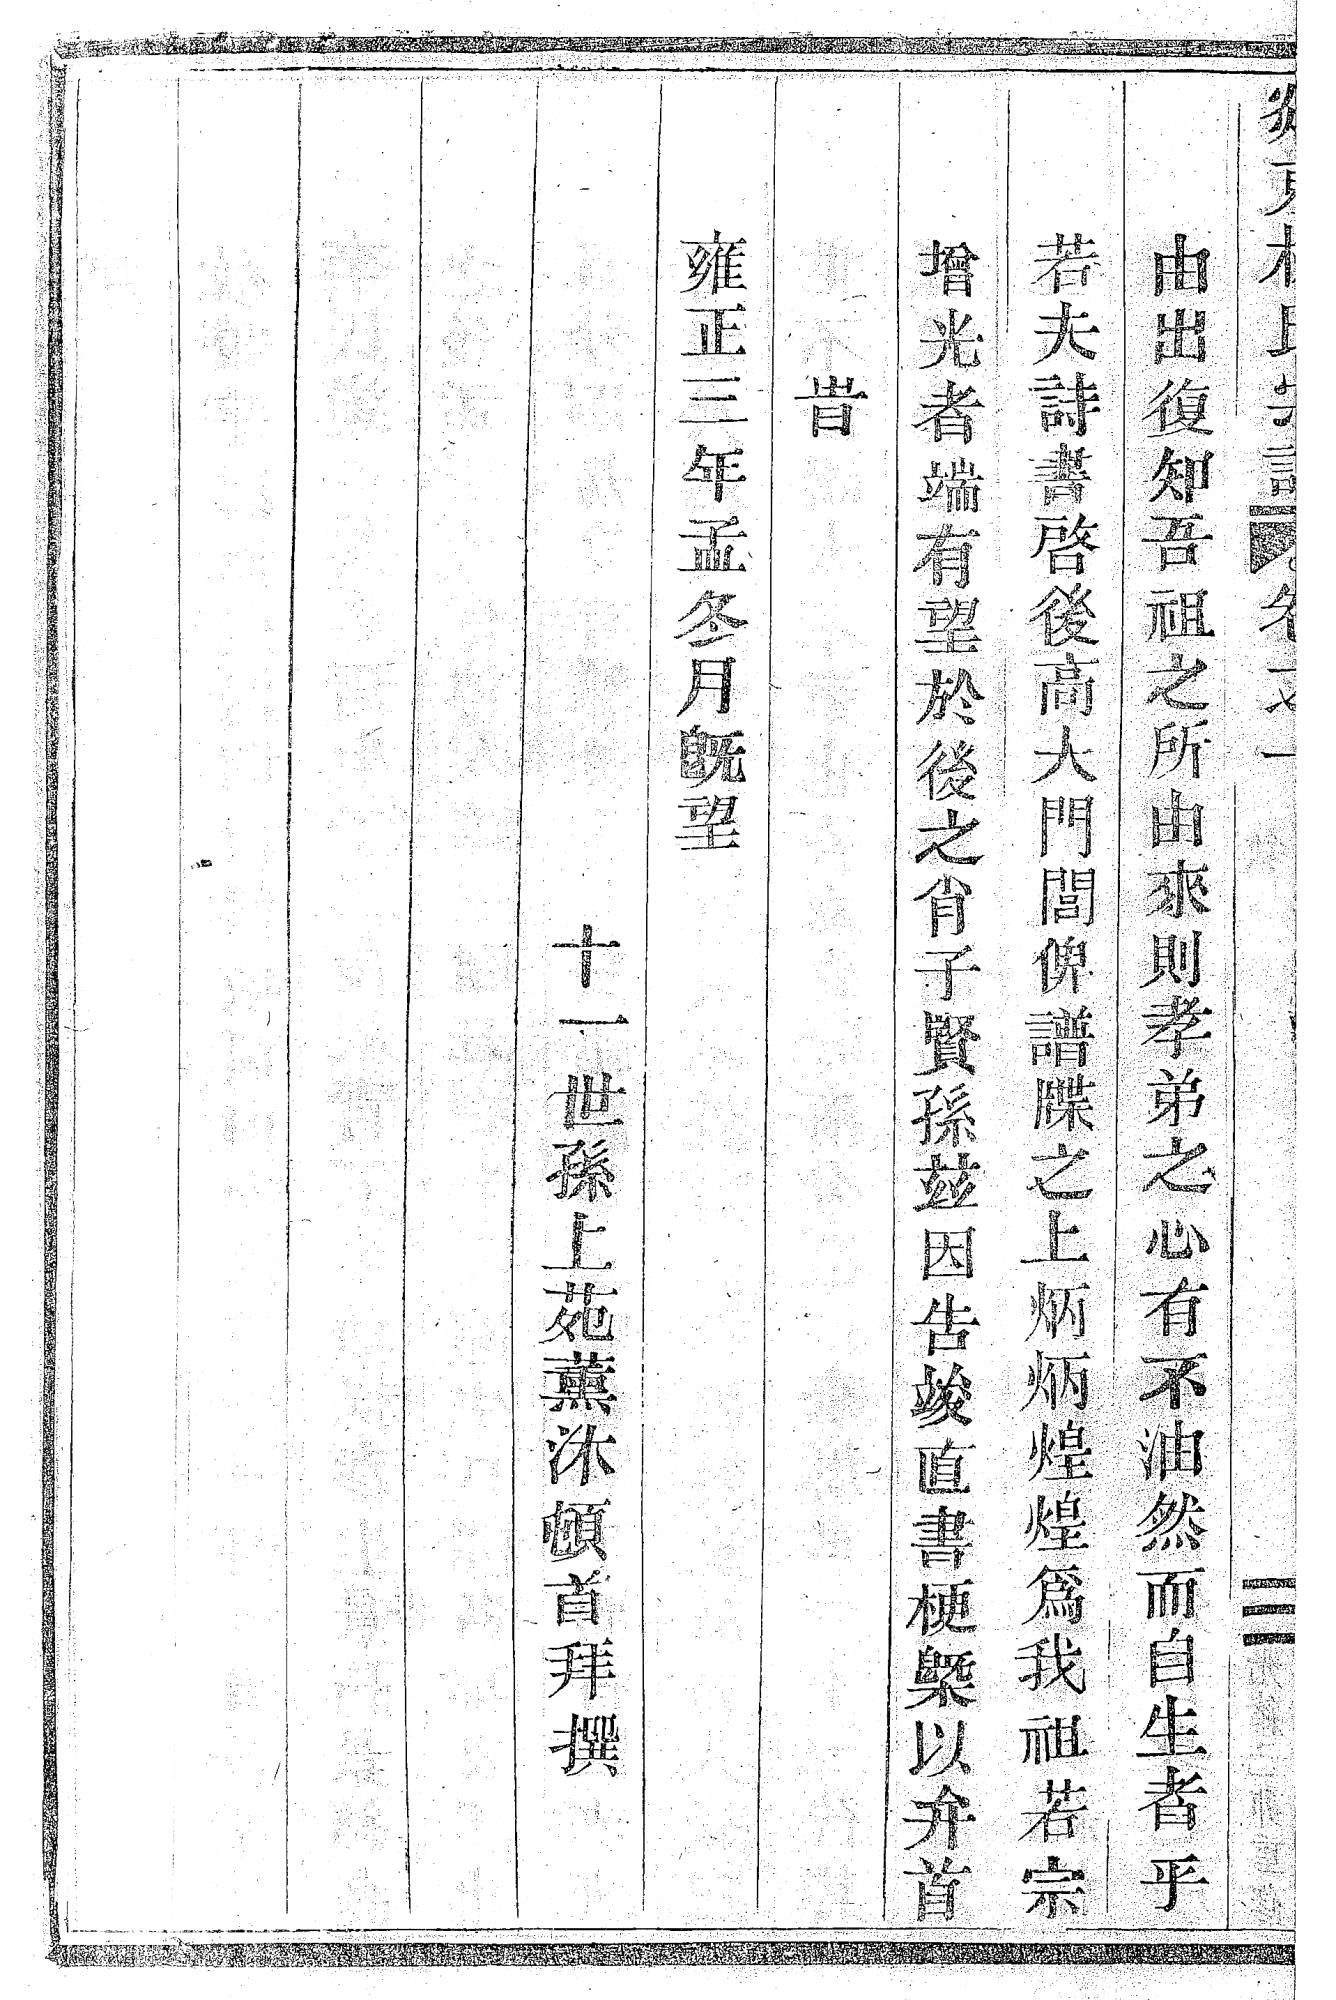 由出復知吾祖之所由來則孝弟之心有不油然而自生者乎
若夫詩書啓後高大門閭俾譜牒之上炳炳煌煌爲我祖若宗
增光者端有望於後之肖子賢孫兹因告竣直書梗槩以弁首
旹
雍正三年孟冬月旣望
十一世孫上苑薰沐頓首拜撰